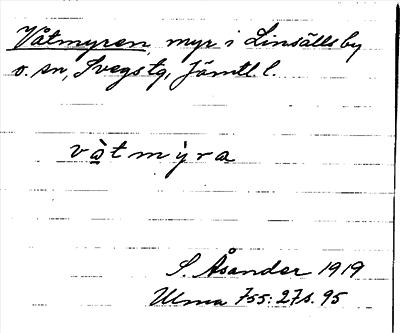 Våtmyren, myr i Linsälls by
o. sn, Svegs tg, Jämtl. l.
våtmyra
S. Åsander 1919
Ulma 755: 27 s. 95